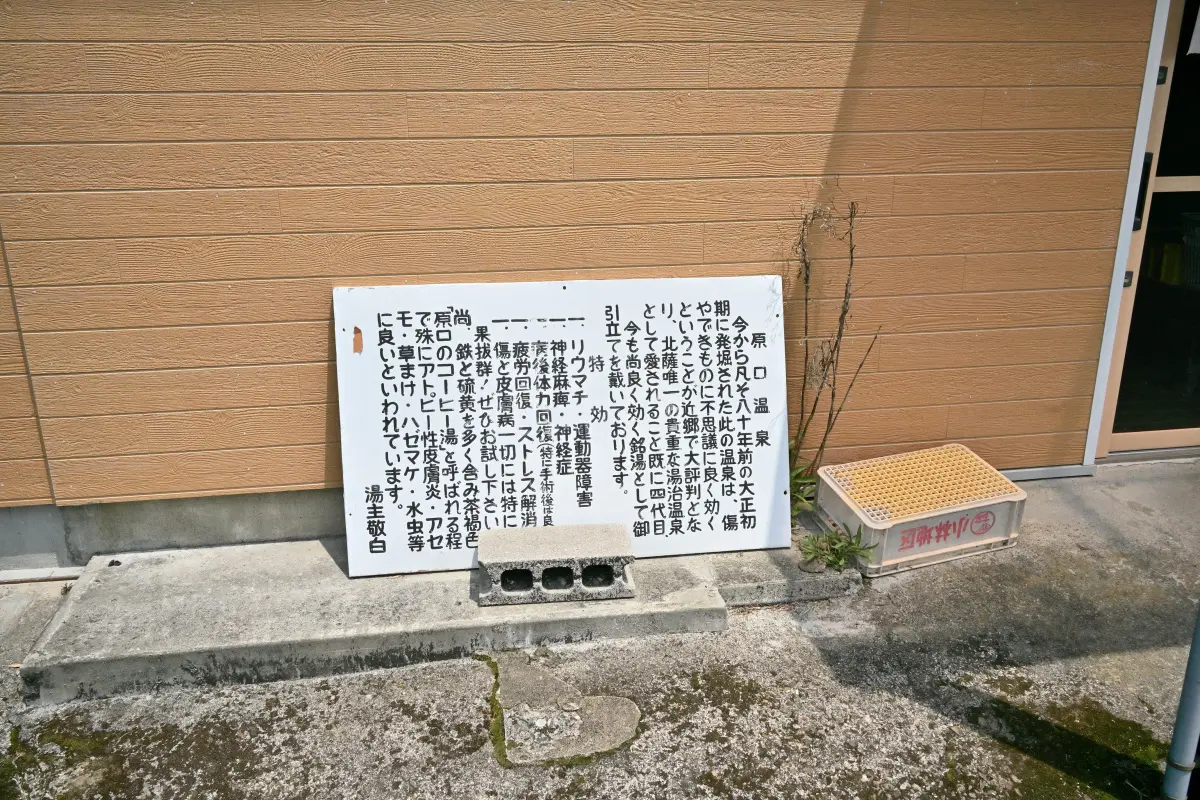 原口温泉
今から凡そ八十年前の大正初
期に発掘された此の温泉は、傷
やできものに不思議に良く効く
ということが近郷で大評判とな
り、北薩唯一の貴重な湯治温泉
として愛されること既に四代目、
今も尚良く効く銘湯として御
引立てを戴いております。
特効
一.リウマチ・運動器障害
一.神経麻痺・神経症
一.病後体力回復(特に手術後は良
一.疲労回復・ストレス解消
一.傷と皮膚病一切には特に
果抜群!ぜひお試し下さい
尚、鉄と硫黄を多く含み茶褐色
「原口のコーヒー湯」と呼ばれる程
で殊にアトピー性皮膚炎・アセ
モ・草まけ・ハゼマケ・水虫等
に良いといわれています。
湯主敬白
小林地区